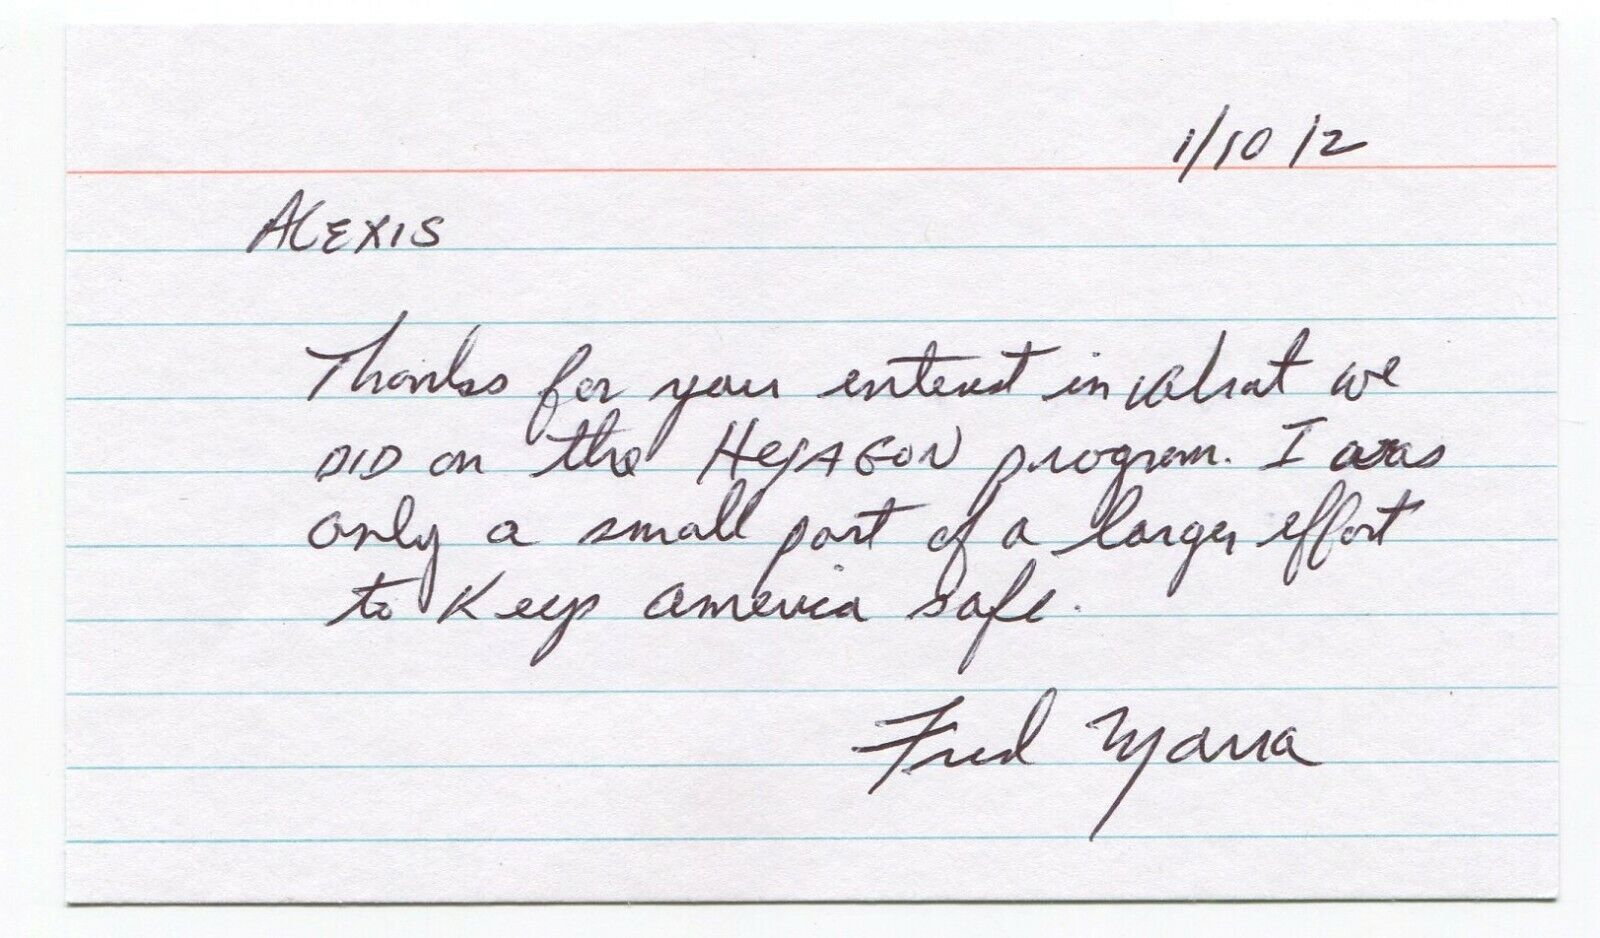 1/10 12
ALEXIS
Thanks for your enterest in what we
DID on the HexAGON program. I was
only a small part of a larger effort
to Keep America safe.
Fred Marra